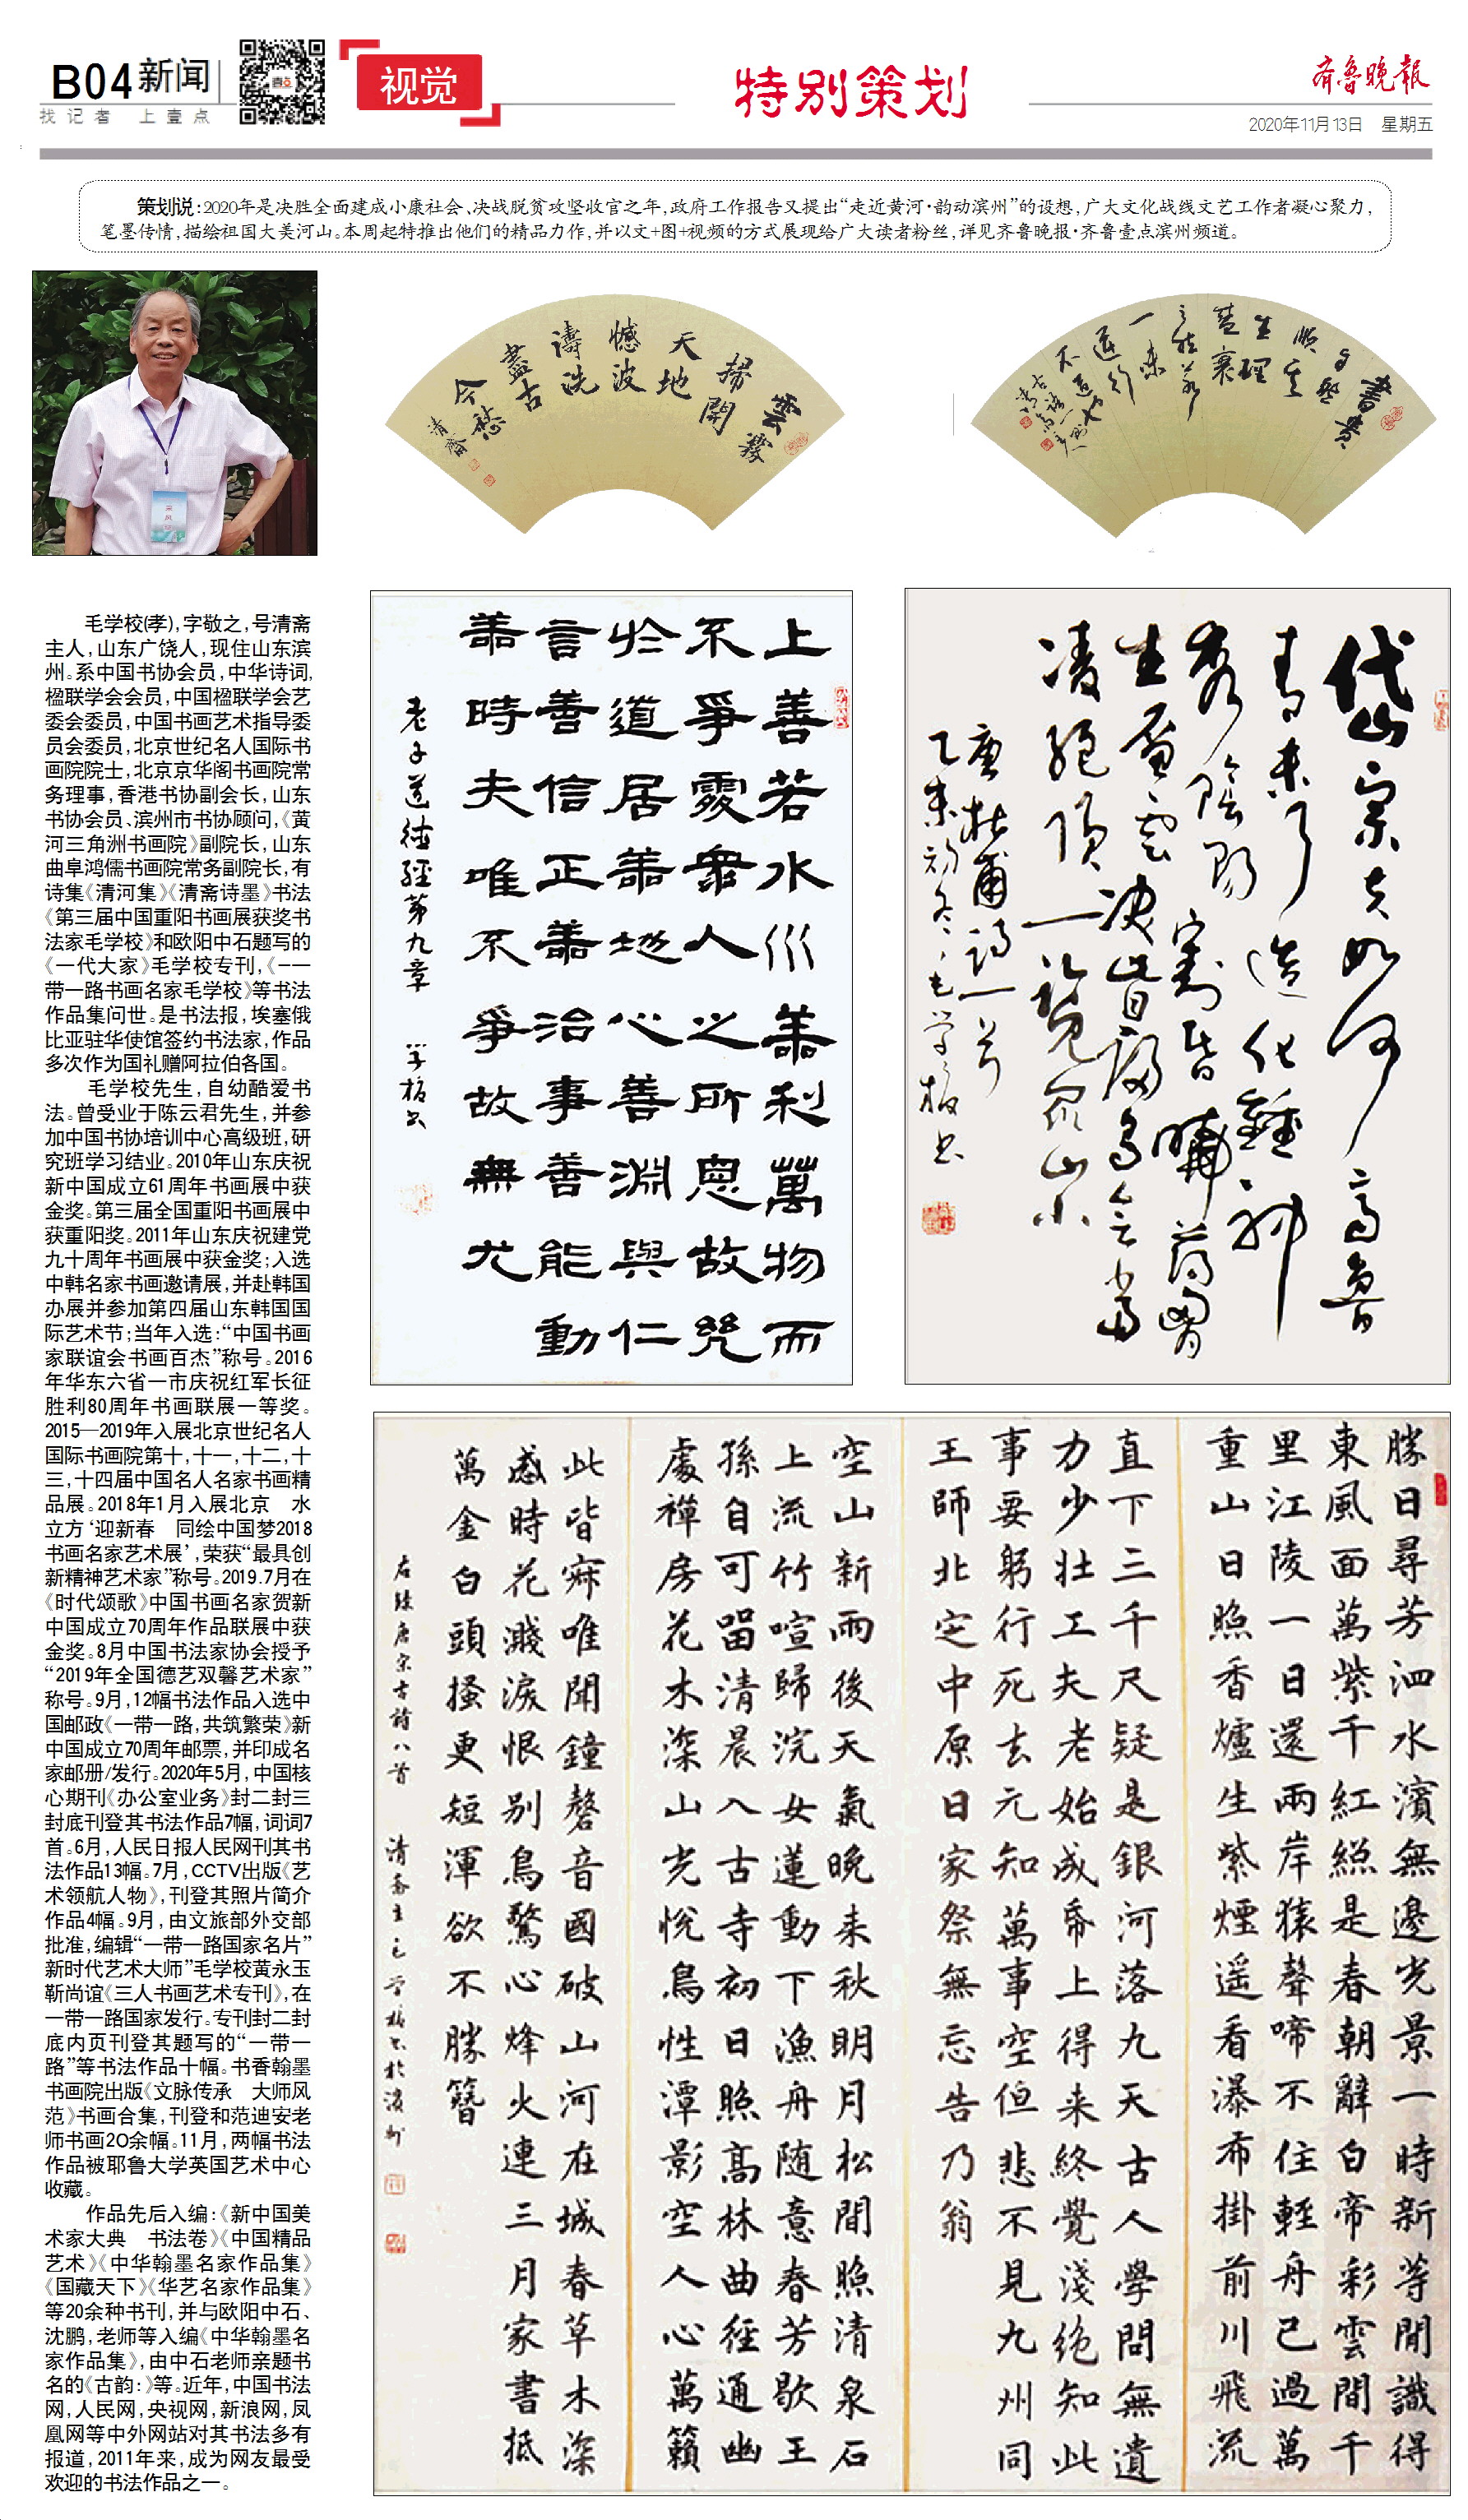 B04 新闻
找记者 上壹点
视觉
特别策划
齐鲁晚报
2020年11月13日 星期五
策划说:2020年是决胜全面建成小康社会、决战脱贫攻坚收官之年,政府工作报告又提出“走近黄河·韵动滨州”的设想,广大文化战线文艺工作者凝心聚力,
笔墨传情,描绘祖国大美河山。本周起特推出他们的精品力作,并以文+图+视频的方式展现给广大读者粉丝,详见齐鲁晚报·齐鲁壹点滨州频道。
毛学校(孝),字敬之,号清斋
主人,山东广饶人,现住山东滨
州。系中国书协会员,中华诗词,
楹联学会会员,中国楹联学会艺
委会委员,中国书画艺术指导委
员会委员,北京世纪名人国际书
画院院士,北京京华阁书画院常
务理事,香港书协副会长,山东
书协会员、滨州市书协顾问,《黄
河三角洲书画院》副院长,山东
曲阜鸿儒书画院常务副院长,有
诗集《清河集》《清斋诗墨》书法
《第三届中国重阳书画展获奖书
法家毛学校》和欧阳中石题写的
《一代大家》毛学校专刊,《-一
带一路书画名家毛学校》等书法
作品集问世。是书法报,埃塞俄
比亚驻华使馆签约书法家,作品
多次作为国礼赠阿拉伯各国。
毛学校先生,自幼酷爱书
法。曾受业于陈云君先生,并参
加中国书协培训中心高级班,研
究班学习结业。2010年山东庆祝
新中国成立61周年书画展中获
金奖。第三届全国重阳书画展中
获重阳奖。2011年山东庆祝建党
九十周年书画展中获金奖;入选
中韩名家书画邀请展,并赴韩国
办展并参加第四届山东韩国国
际艺术节;当年入选:“中国书画
家联谊会书画百杰”称号。2016
年华东六省一市庆祝红军长征
胜利80周年书画联展一等奖。
2015—2019年入展北京世纪名人
国际书画院第十,十一,十二,十
三,十四届中国名人名家书画精
品展。2018年1月入展北京 水
立方‘迎新春 同绘中国梦2018
书画名家艺术展’,荣获“最具创
新精神艺术家”称号。2019.7月在
《时代颂歌》中国书画名家贺新
中国成立70周年作品联展中获
金奖。8月中国书法家协会授予
“2019年全国德艺双馨艺术家”
称号。9月,12幅书法作品入选中
国邮政《一带一路,共筑繁荣》新
中国成立70周年邮票,并印成名
家邮册/发行。2020年5月,中国核
心期刊《办公室业务》封二封三
封底刊登其书法作品7幅,词词7
首。6月,人民日报人民网刊其书
法作品13幅。7月,CCTV出版《艺
术领航人物》,刊登其照片简介
作品4幅。9月,由文旅部外交部
批准,编辑“一带一路国家名片”
新时代艺术大师”毛学校黄永玉
靳尚谊《三人书画艺术专刊》,在
一带一路国家发行。专刊封二封
底内页刊登其题写的“一带一
路”等书法作品十幅。书香翰墨
书画院出版《文脉传承 大师风
范》书画合集,刊登和范迪安老
师书画20余幅。11月,两幅书法
作品被耶鲁大学英国艺术中心
收藏。
作品先后入编:《新中国美
术家大典 书法卷》《中国精品
艺术》《中华翰墨名家作品集》
《国藏天下》《华艺名家作品集》
等20余种书刊,并与欧阳中石、
沈鹏,老师等入编《中华翰墨名
家作品集》,由中石老师亲题书
名的《古韵:》等。近年,中国书法
网,人民网,央视网,新浪网,凤
凰网等中外网站对其书法多有
报道,2011年来,成为网友最受
欢迎的书法作品之一。
雲簃
揚開
天地
憾波
濤洗
盡古
今愁
清齋
書貴
上善若水水善利萬物而
不爭處衆人之所惡故幾
於道居善地心善淵與善仁
言善信正善治事善能動
善時夫唯不爭故無尤
老子道德經第九章 學校書
岱宗夫如何齊魯
青未了造化鍾神
秀陰陽割昏曉蕩胸
生層雲決眥歸鳥會當
凌絕頂一覽眾山小
唐杜甫詩一首
乙未初冬毛學校書
勝日尋芳泗水濱無邊光景一時新等閒識得
東風面萬紫千紅總是春朝辭白帝彩雲間千
里江陵一日還兩岸猿聲啼不住輕舟已過萬
重山日照香爐生紫煙遥看瀑布掛前川飛流
直下三千尺疑是銀河落九天古人學問無遺
力少壯工夫老始成帋上得來終覺淺絶知此
事要躬行死去元知萬事空但悲不見九州同
王師北定中原日家祭無忘告乃翁
空山新雨後天氣晚來秋明月松間照清泉石
上流竹喧歸浣女蓮動下漁舟随意春芳歇王
孫自可留清晨入古寺初日照高林曲徑通幽
處禪房花木深山光悅鳥性潭影空人心萬籟
此皆寂唯聞鐘磬音國破山河在城春草木深
感時花濺淚恨别鳥驚心烽火連三月家書抵
萬金白頭搔更短渾欲不勝簪
右録唐宋古詩八首 清齋主人毛學校書於濱州